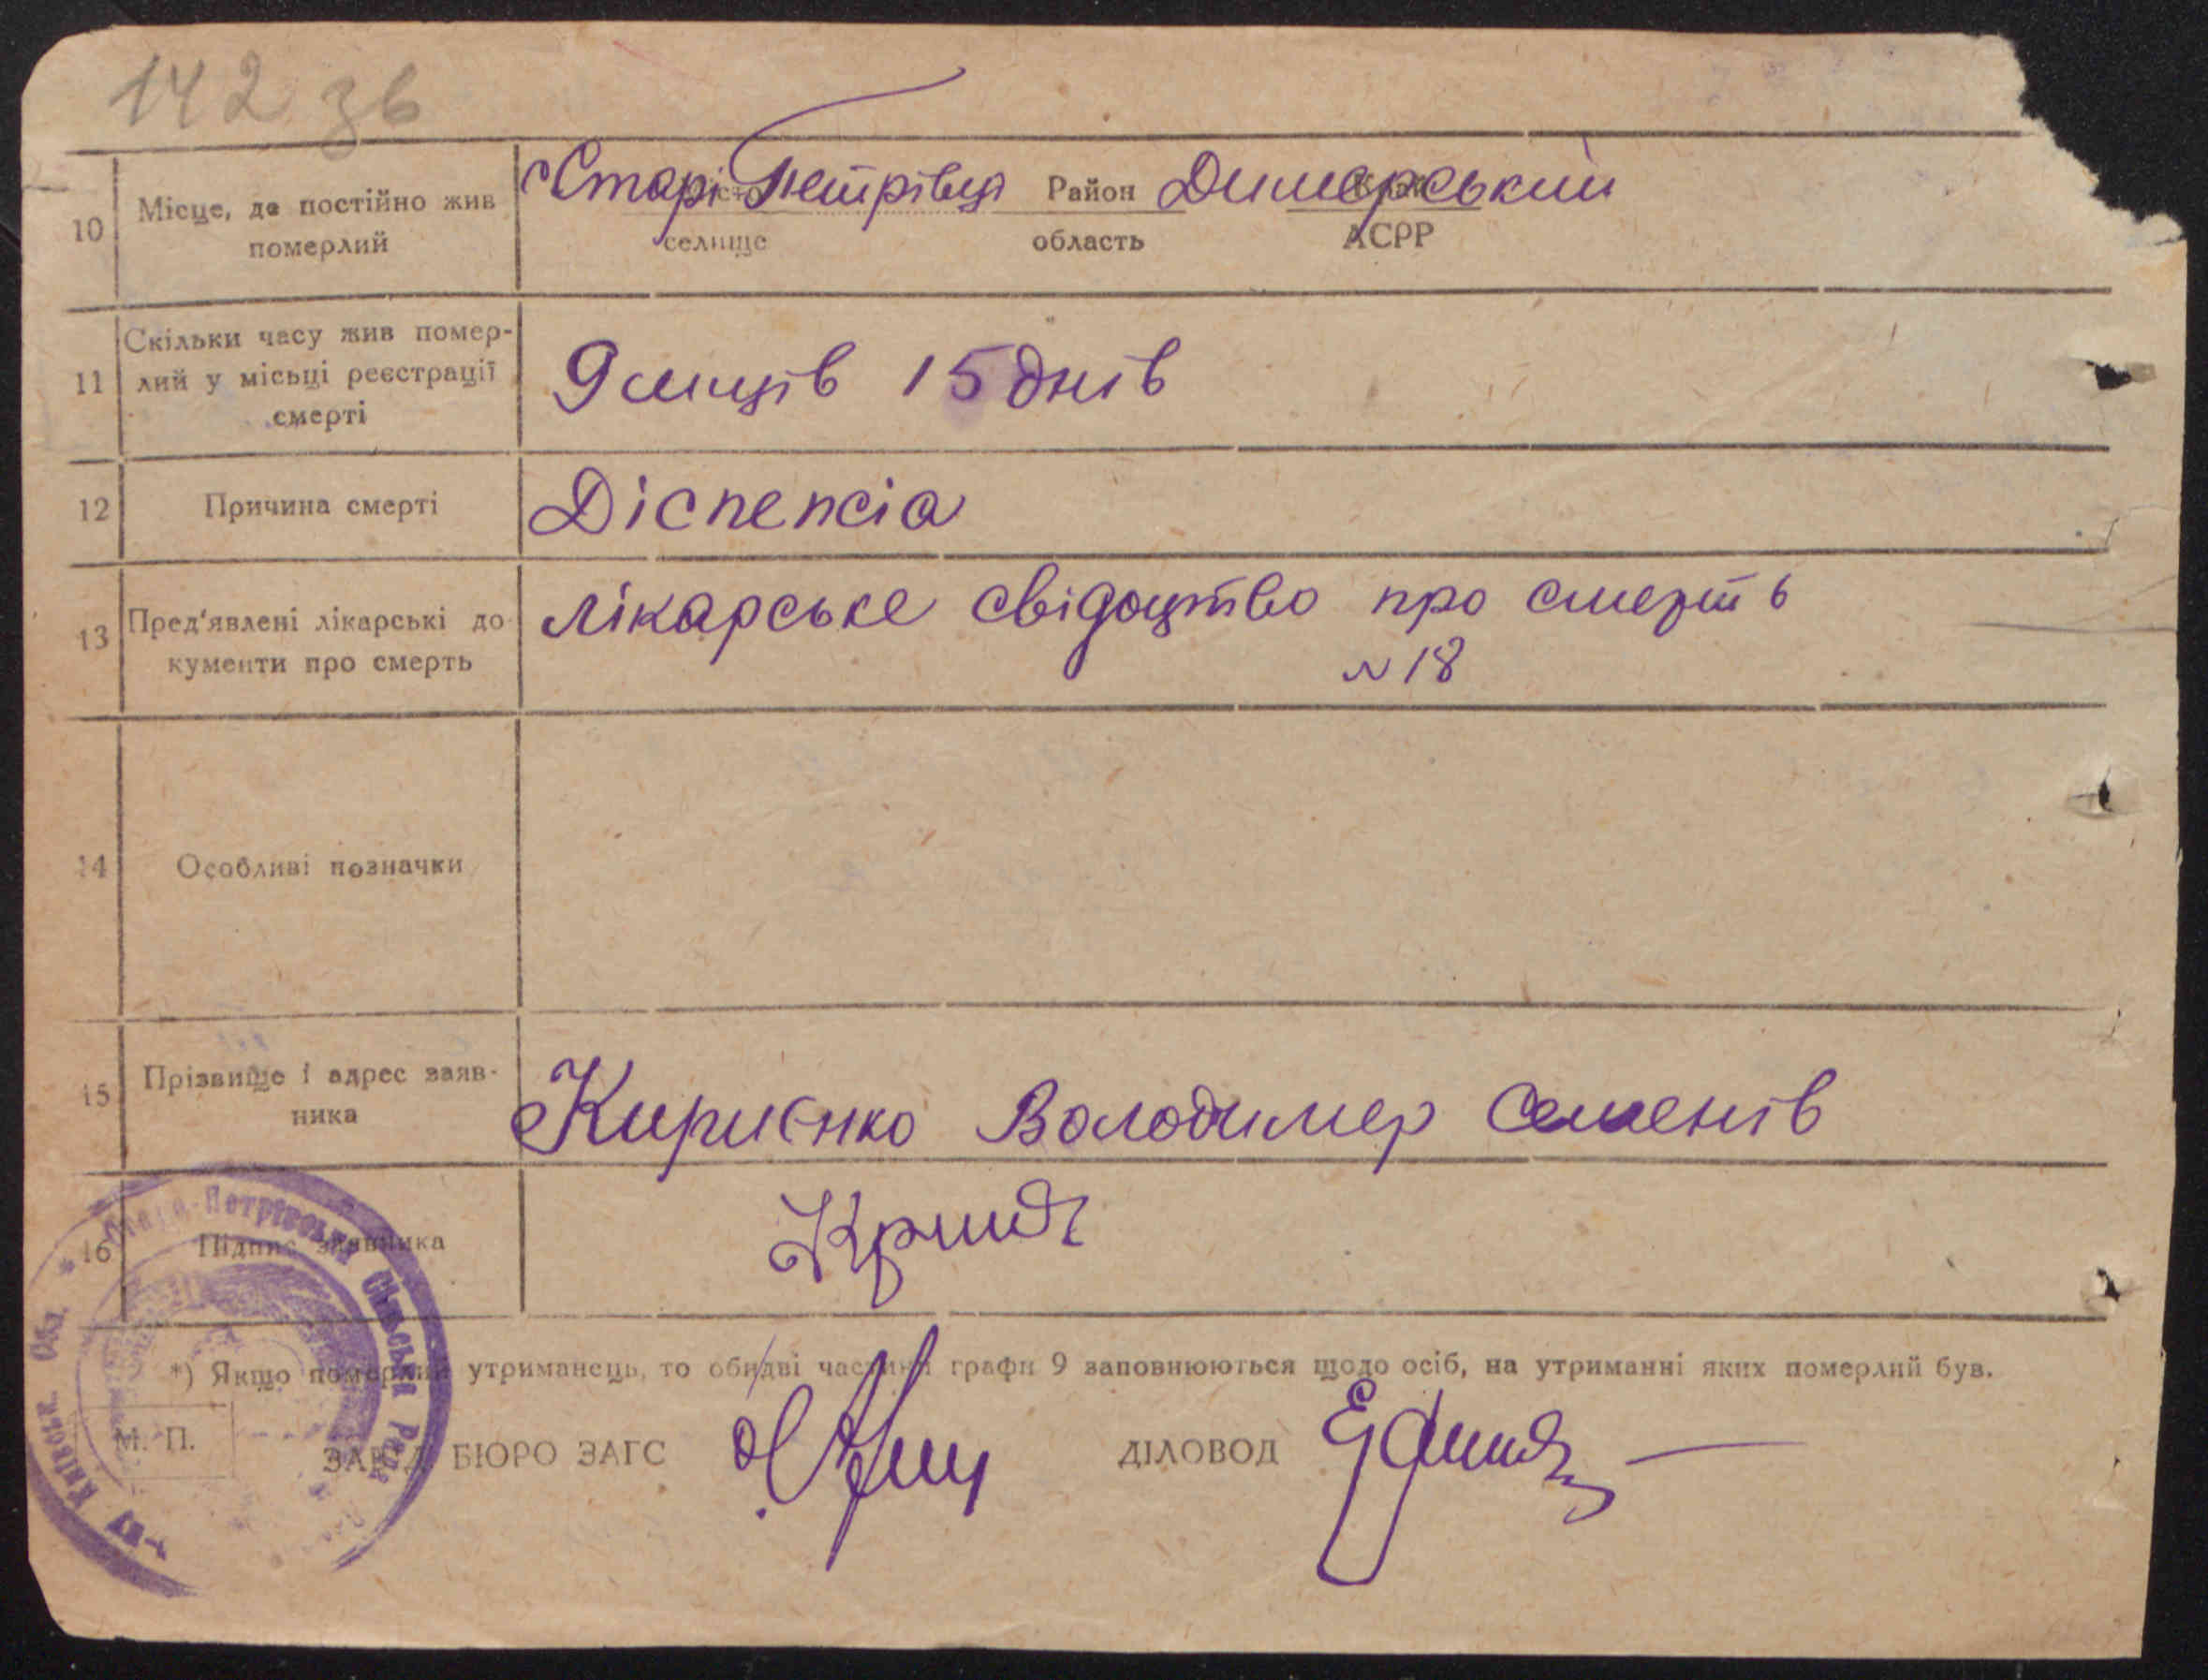 142 зв
10 Місце, де постійно жив померлий
с Старі Петрівці Район Димерський
місто Край
селище область АСРР
11 Скільки часу жив помер-
лий у місьці реєстрації
смерті
9 місців 15 днів
12 Причина смерті Діспепсіа
13 Пред'явлені лікарські до
кументи про смерть
лікарське свідоцтво про смерть
№ 18
14 Особливі позначки
15 Прізвище і адрес заяв-
ника
Кириєнко Володимер Семенів
16 Підпис заявника
*) Якщо померлий утриманець, то обидві частини графи 9 заповнюються щодо осіб, на утриманні яких померлий був.
М. П.
ЗАВІД. БЮРО ЗАГС ДІЛОВОД
Старо-Петрівська Сільська Рада
Київськ. Обл.